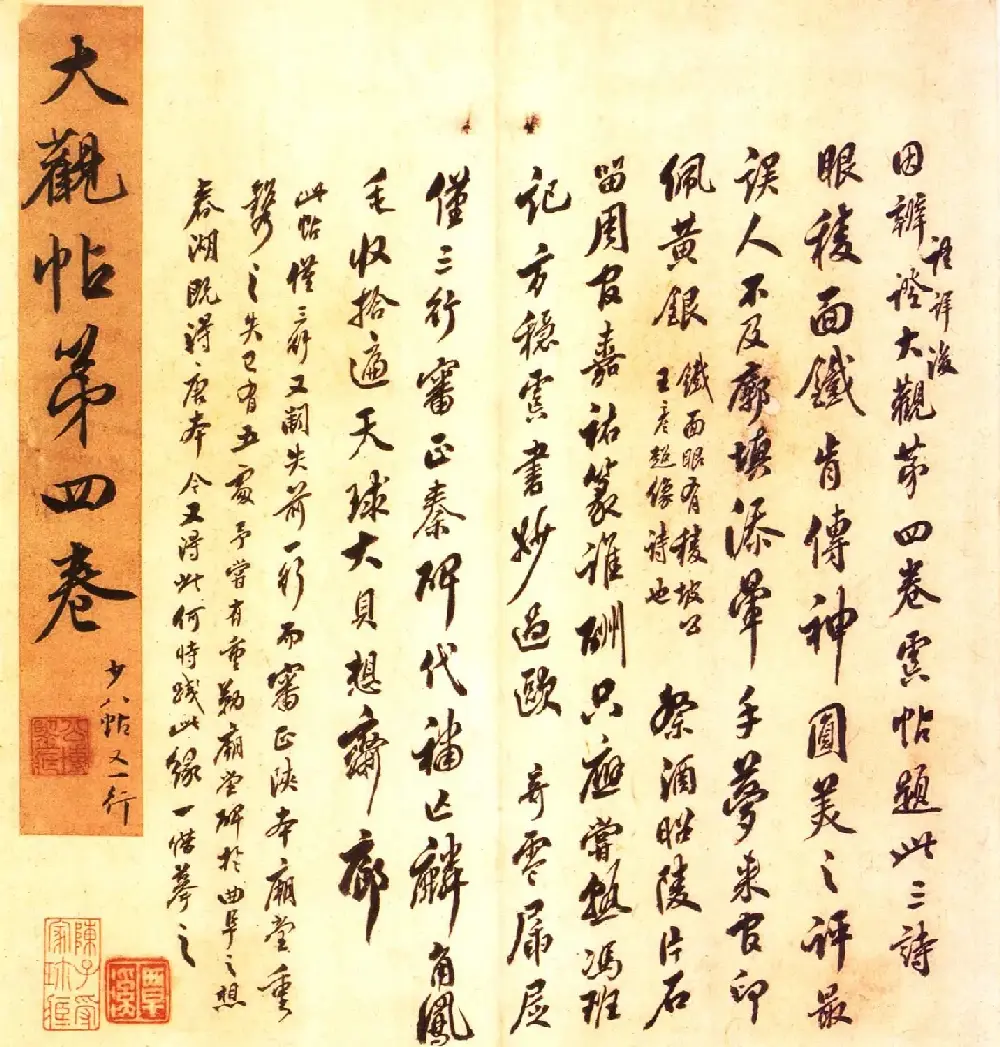 因辨證大觀第四卷虞帖題此三詩
詳後
眼稜面鐵肯傳神圓美之評最
誤人不及廓填添暈手夢來官印
佩黃銀
鐵面眼有稜坡公
王彥超像詩也
祭酒昭陵片石
留周官嘉祐篆誰酬只應嘗熟馮班
記方穩虞書妙過歐 奇零
僅三行審正秦碑代補亡麟角鳳
毛收拾遍天球大貝想齋廊
此帖僅三行又闕失前一行而審正陝本廟堂重
之失已有五處予嘗有重勒廟堂碑於曲阜之想
春湖既得唐本今又得此何時踐此緣一借摹之
大觀帖第四卷
少八帖又一行
覃溪
陳子受
家珍臧